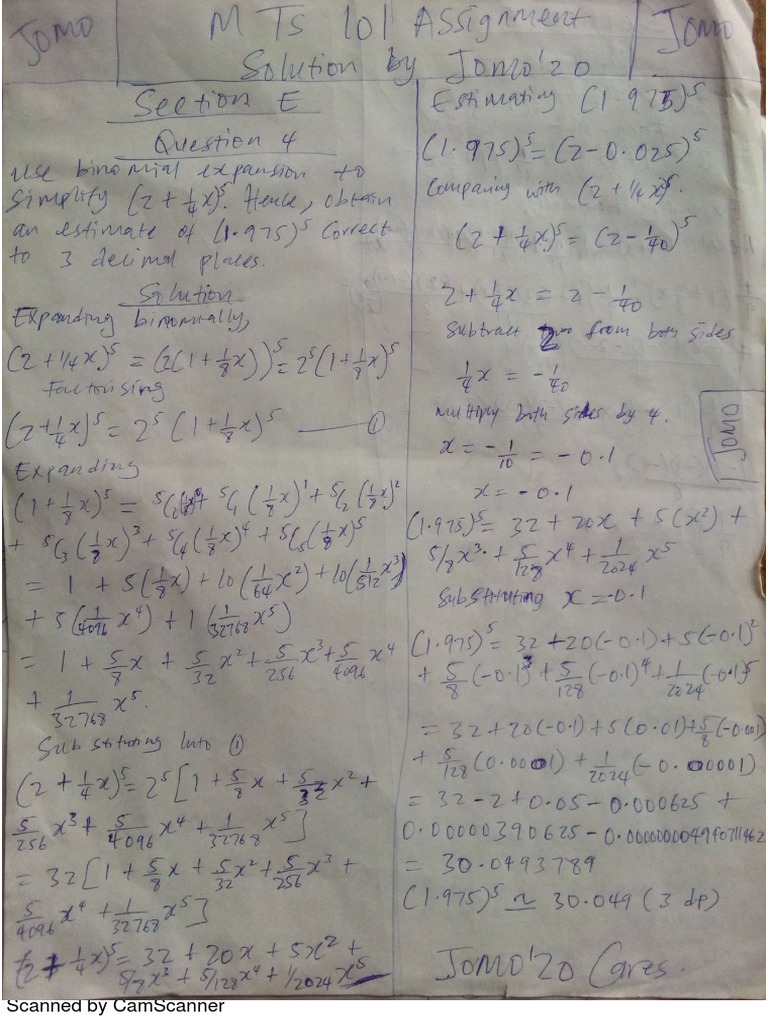 JOMO
MTS 101 Assignment
JOMO
Solution by Jomo'20
Section E
Question 4
Use binomial expansion to
simplify (2 + ¼x)⁵. Hence, obtain
an estimate of (1.975)⁵ correct
to 3 decimal places.
Solution
Expanding binomially,
(2 + 1/4 x)⁵ = (2(1 + 1/8 x))⁵ = 2⁵(1 + 1/8 x)⁵
Factorising
(2 + 1/4 x)⁵ = 2⁵ (1 + 1/8 x)⁵ —— ①
Expanding
(1 + 1/8 x)⁵ = ⁵C₀(1/8 x)⁰ + ⁵C₁(1/8 x)¹ + ⁵C₂(1/8 x)²
+ ⁵C₃(1/8 x)³ + ⁵C₄(1/8 x)⁴ + ⁵C₅(1/8 x)⁵
= 1 + 5(1/8 x) + 10(1/64 x²) + 10(1/512 x³)
+ 5(1/4096 x⁴) + 1(1/32768 x⁵)
= 1 + 5/8 x + 5/32 x² + 5/256 x³ + 5/4096 x⁴
+ 1/32768 x⁵.
Substituting Into ①
(2 + 1/4 x)⁵ = 2⁵[1 + 5/8 x + 5/32 x² +
5/256 x³ + 5/4096 x⁴ + 1/32768 x⁵]
= 32[1 + 5/8 x + 5/32 x² + 5/256 x³ +
5/4096 x⁴ + 1/32768 x⁵]
(2 + 1/4 x)⁵ = 32 + 20x + 5x² +
5/8 x³ + 5/128 x⁴ + 1/2024 x⁵
Estimating (1.975)⁵
(1.975)⁵ = (2 - 0.025)⁵
Comparing with (2 + 1/4 x)⁵.
(2 + 1/4 x)⁵ = (2 - 1/40)⁵
2 + 1/4 x = 2 - 1/40
Subtract 2 from both sides
1/4 x = -1/40
Multiply both sides by 4.
x = -1/10 = -0.1
x = -0.1
JOMO
(1.975)⁵ = 32 + 20x + 5(x²) +
5/8 x³ + 5/128 x⁴ + 1/2024 x⁵
Substituting x = -0.1
(1.975)⁵ = 32 + 20(-0.1) + 5(-0.1)²
+ 5/8 (-0.1)³ + 5/128 (-0.1)⁴ + 1/2024 (-0.1)⁵
= 32 + 20(-0.1) + 5(0.01) + 5/8 (-0.001)
+ 5/128 (0.0001) + 1/2024 (-0.00001)
= 32 - 2 + 0.05 - 0.000625 +
0.00000390625 -
= 30.0493789
(1.975)⁵ ≃ 30.049 (3 dp)
JOMO'20 Cares.
Scanned by CamScanner